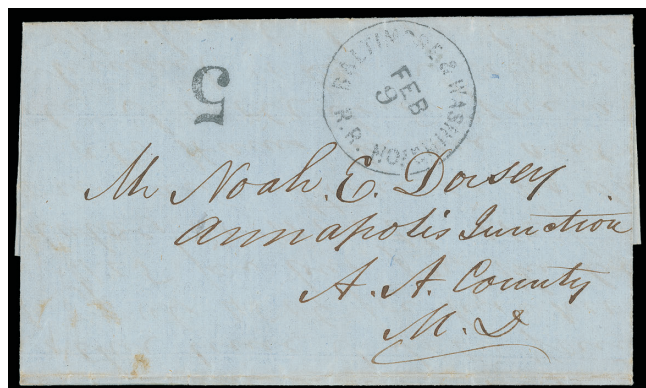 5
BALTIMORE & WASHINGTON R.R.
FEB
9
Mr Noah. E. Dorsey
Annapolis Junction
A. A. County
M. D